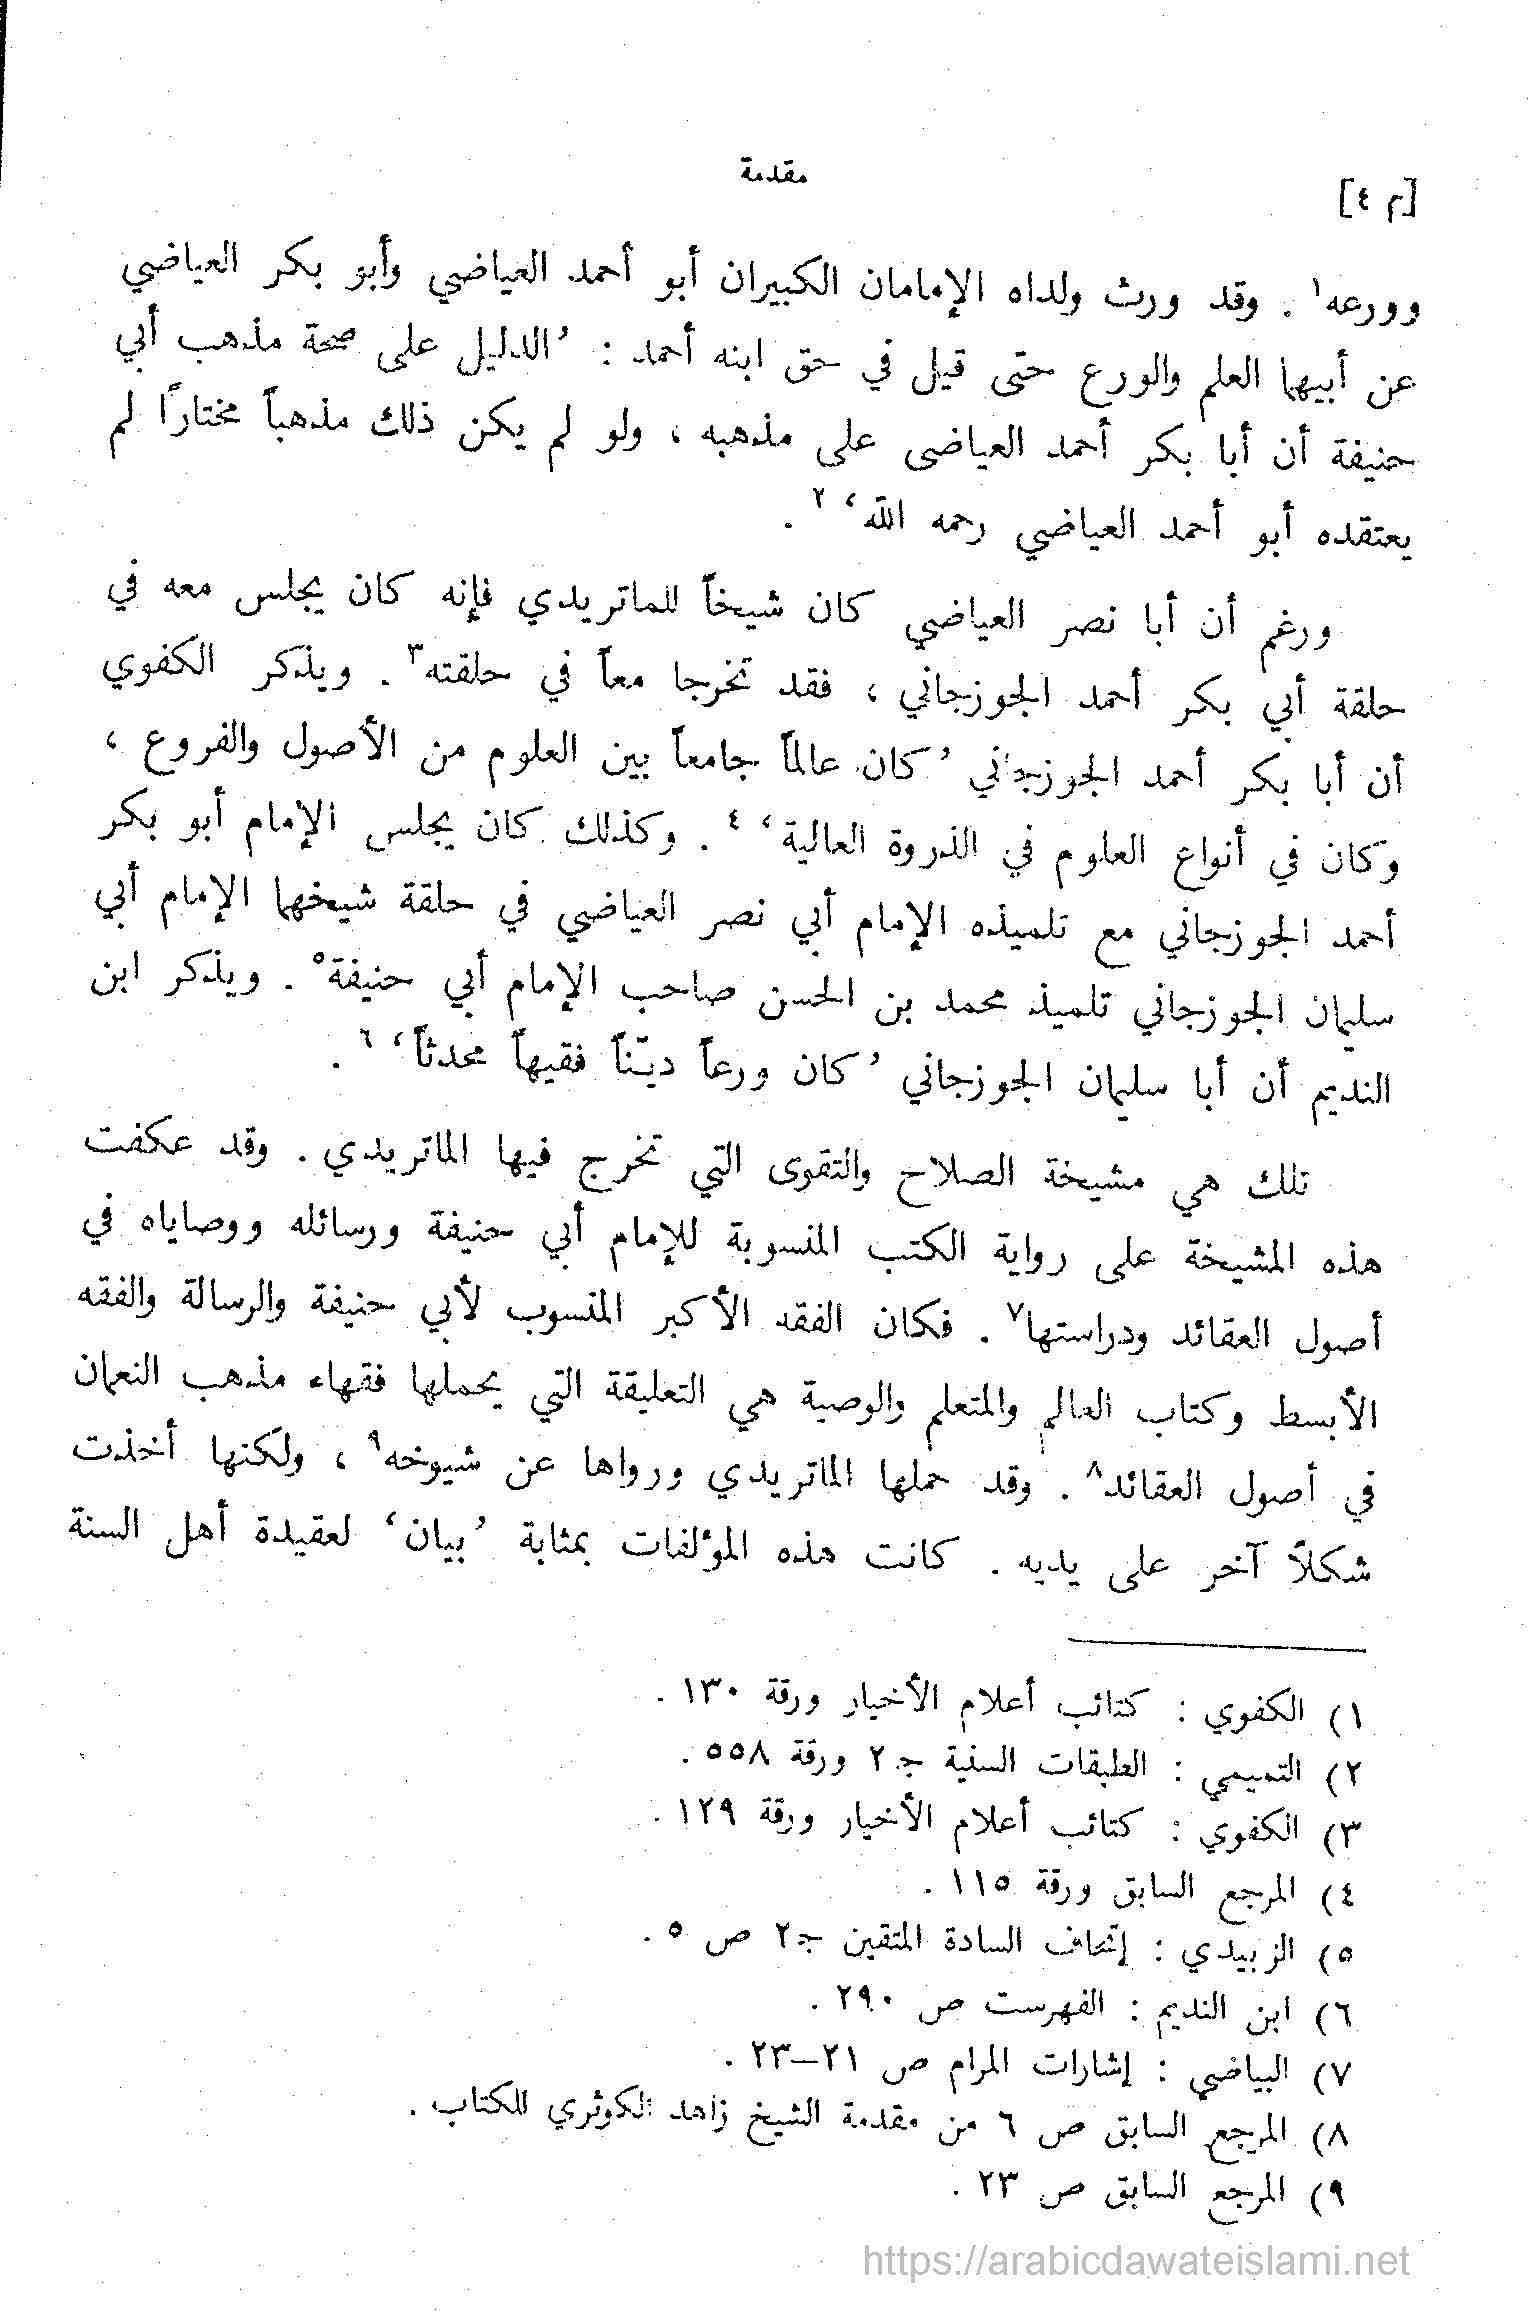 مقدمة
[م ٤]
وورعه١ . وقد ورث ولداه الإمامان الكبيران أبو أحمد العياضي وأبو بكر العياضي
عن أبيهما العلم والورع حتى قيل في حق ابنه أحمد : ’الدليل على صحة مذهب أبي
حنيفة أن أبا بكر أحمد العياضى على مذهبه ، ولو لم يكن ذلك مذهباً مختارًا لم
يعتقده أبو أحمد العياضي رحمه الله‘ ٢ .
ورغم أن أبا نصر العياضي كان شيخاً للماتريدي فإنه كان يجلس معه في
حلقة أبي بكر أحمد الجوزجاني ، فقد تخرجا معاً في حلقته٣ . ويذكر الكفوي
أن أبا بكر أحمد الجوزجاني ’كان عالماً جامعاً بين العلوم من الأصول والفروع ،
وكان في أنواع العلوم في الذروة العالية‘ ٤ . وكذلك كان يجلس الإمام أبو بكر
أحمد الجوزجاني مع تلميذه الإمام أبي نصر العياضي في حلقة شيخهما الإمام أبي
سليمان الجوزجاني تلميذ محمد بن الحسن صاحب الإمام أبي حنيفة٥ . ويذكر ابن
النديم أن أبا سليمان الجوزجاني ’كان ورعاً ديّناً فقيهاً محدثاً‘ ٦ .
تلك هي مشيخة الصلاح والتقوى التي تخرج فيها الماتريدي . وقد عكفت
هذه المشيخة على رواية الكتب المنسوبة للإمام أبي حنيفة ورسائله ووصاياه في
أصول العقائد ودراستها٧ . فكان الفقه الأكبر المنسوب لأبي حنيفة والرسالة والفقه
الأبسط وكتاب العالم والمتعلم والوصية هي التعليقة التي يحملها فقهاء مذهب النعمان
في أصول العقائد٨ . وقد حملها الماتريدي ورواها عن شيوخه٩ ، ولكنها أخذت
شكلاً آخر على يديه . كانت هذه المؤلفات بمثابة ’بيان‘ لعقيدة أهل السنة
١) الكفوي : كتائب أعلام الأخيار ورقة ١٣٠ .
٢) التميمي : الطبقات السنية ج٢ ورقة ٥٥٨ .
٣) الكفوي : كتائب أعلام الأخيار ورقة ١٢٩ .
٤) المرجع السابق ورقة ١١٥ .
٥) الزبيدي : إتحاف السادة المتقين ج٢ ص ٥ .
٦) ابن النديم : الفهرست ص ٢٩٠ .
٧) البياضي : إشارات المرام ص ٢١–٢٣ .
٨) المرجع السابق ص ٦ من مقدمة الشيخ زاهد الكوثري للكتاب .
٩) المرجع السابق ص ٢٣ .
https://arabicdawateislami.net